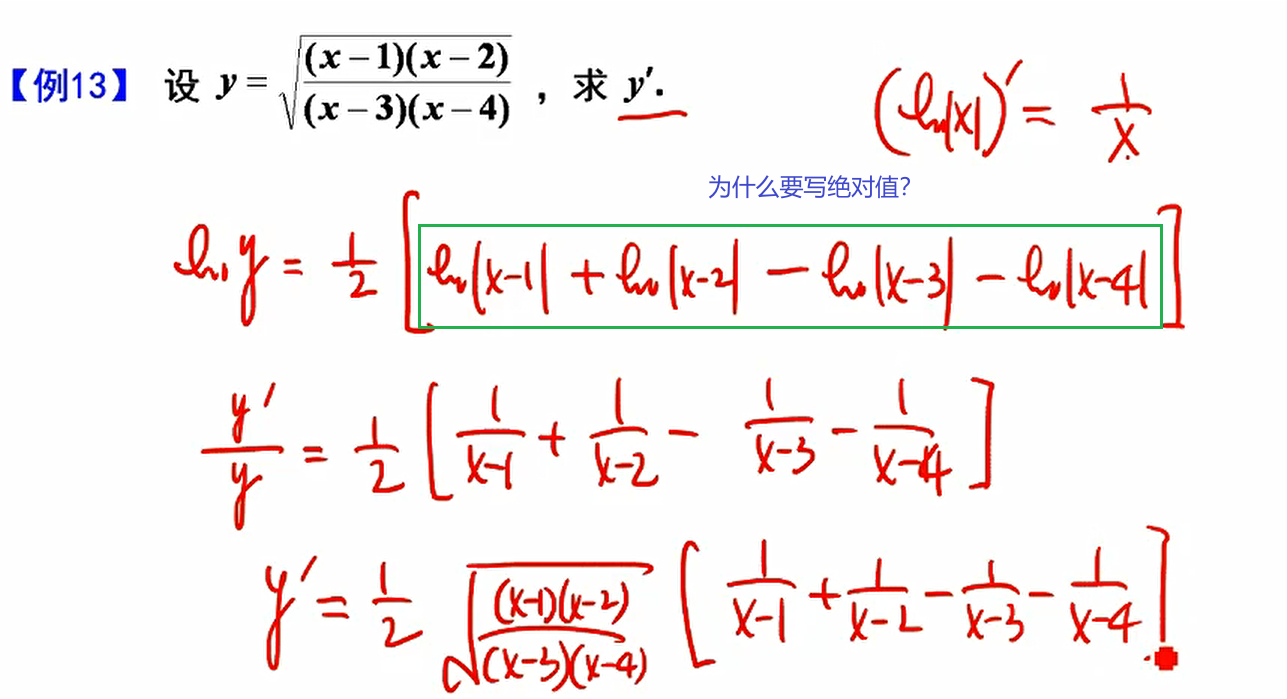 【例13】 设 y = √((x − 1)(x − 2) / (x − 3)(x − 4)) ，求 y′.
(ln|x|)′ = 1/x
为什么要写绝对值？
ln y = 1/2 [ln|x-1| + ln|x-2| − ln|x-3| − ln|x-4|]
y′/y = 1/2 [1/(x-1) + 1/(x-2) − 1/(x-3) − 1/(x-4)]
y′ = 1/2 √((x-1)(x-2) / (x-3)(x-4)) [1/(x-1) + 1/(x-2) − 1/(x-3) − 1/(x-4)]